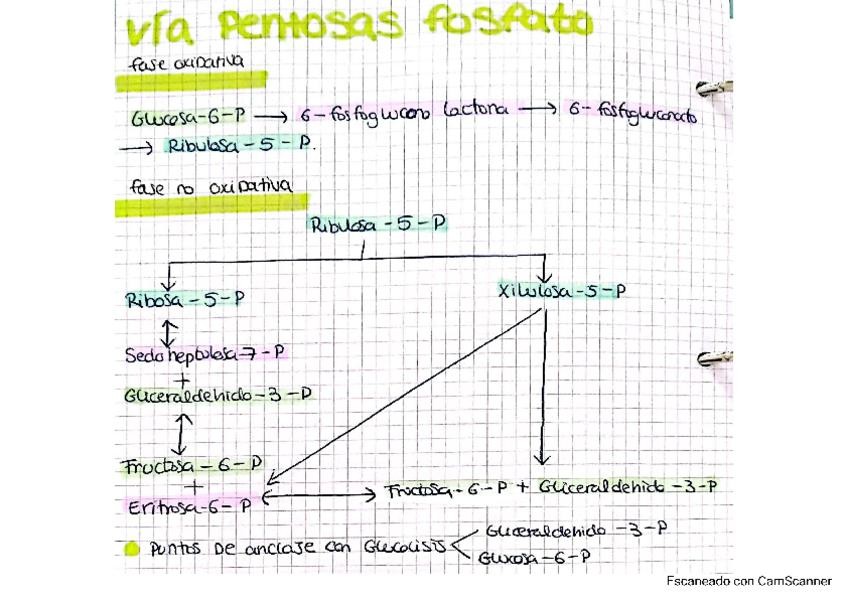 vía pentosas fosfato
fase oxidativa
Glucosa-6-P → 6-fosfoglucono lactona → 6-fosfogluconato
→ Ribulosa-5-P.
fase no oxidativa
Ribulosa-5-P
Ribosa-5-P
Xilulosa-5-P
Sedoheptulosa-7-P
+
Gliceraldehido-3-P
Fructosa-6-P
+
Eritrosa-6-P
Fructosa-6-P + Gliceraldehido-3-P
Puntos de anclaje con Glucolisis
Gliceraldehido-3-P
Glucosa-6-P
Escaneado con CamScanner